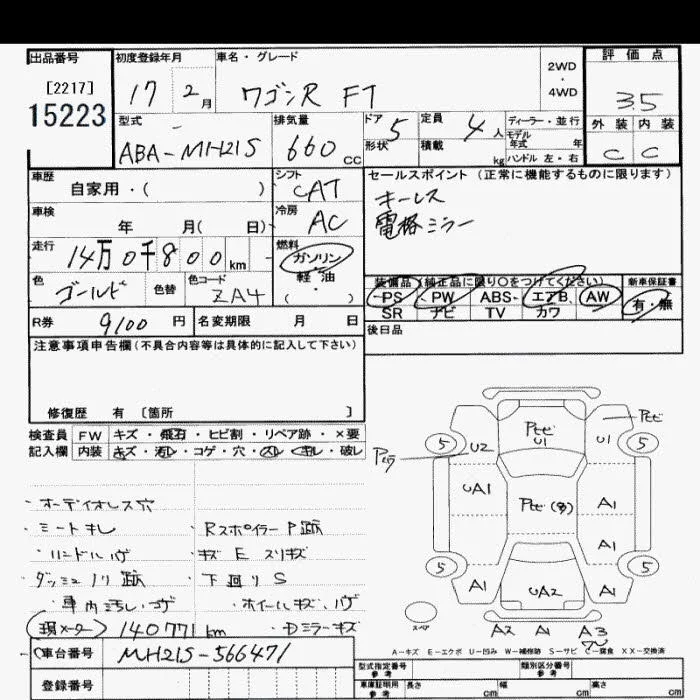 出品番号 初度登録年月 車名・グレード 2WD・4WD 評価点
[2217]
15223
17 2月 ワゴンR FT 3.5
型式 排気量 ドア 形状 定員 積載 ディーラー・並行 モデル年式 年 ハンドル 左・右 外装 内装
ABA-MH21S 660cc 5 4人 kg C C
車歴 自家用・( ) シフト CAT セールスポイント(正常に機能するものに限ります)
車検 年 月( 日) 冷房 AC キーレス
電格ミラー
走行 14万0千800km 燃料 ガソリン 軽・油 ( )
色 ゴールド 色替 色コード ZA4
装備品(純正品に限り○をつけてください) 新車保証書
PS PW ABS エアB AW 有・無
SR ナビ TV カワ
R券 9100円 名変期限 月 日 後日品
注意事項申告欄(不具合内容等は具体的に記入して下さい)
修復歴 有 [箇所 ]
検査員 FW キズ・飛石・ヒビ割・リペア跡・×要
記入欄 内装 キズ・汚レ・コゲ・穴・スレ・キレ・破レ
・オーディオレス穴
・シートキレ ・Rスポイラー P跡
・ハンドルハゲ ・キズ E スリキズ
・ダッシュノリ跡 ・下廻りS
・車内汚レ・コゲ ・ホイールキズ、ハゲ
現メーター 140771km ・Dミラーキズ
車台番号 MH21S-566471
登録番号
Pとび U1 Pとび
5 U2 U1 5
P跡
UA1 Pとび(多) A1
A1
5 A1 UA2 A1 5
スペア A2 A1 A3
A-キズ E-エクボ U-凹み W-補修跡 S-サビ C-腐食 XX-交換済
型式指定番号 参考 類別区分番号 参考
車庫証明用 参考 長さ cm 幅 cm 高さ cm